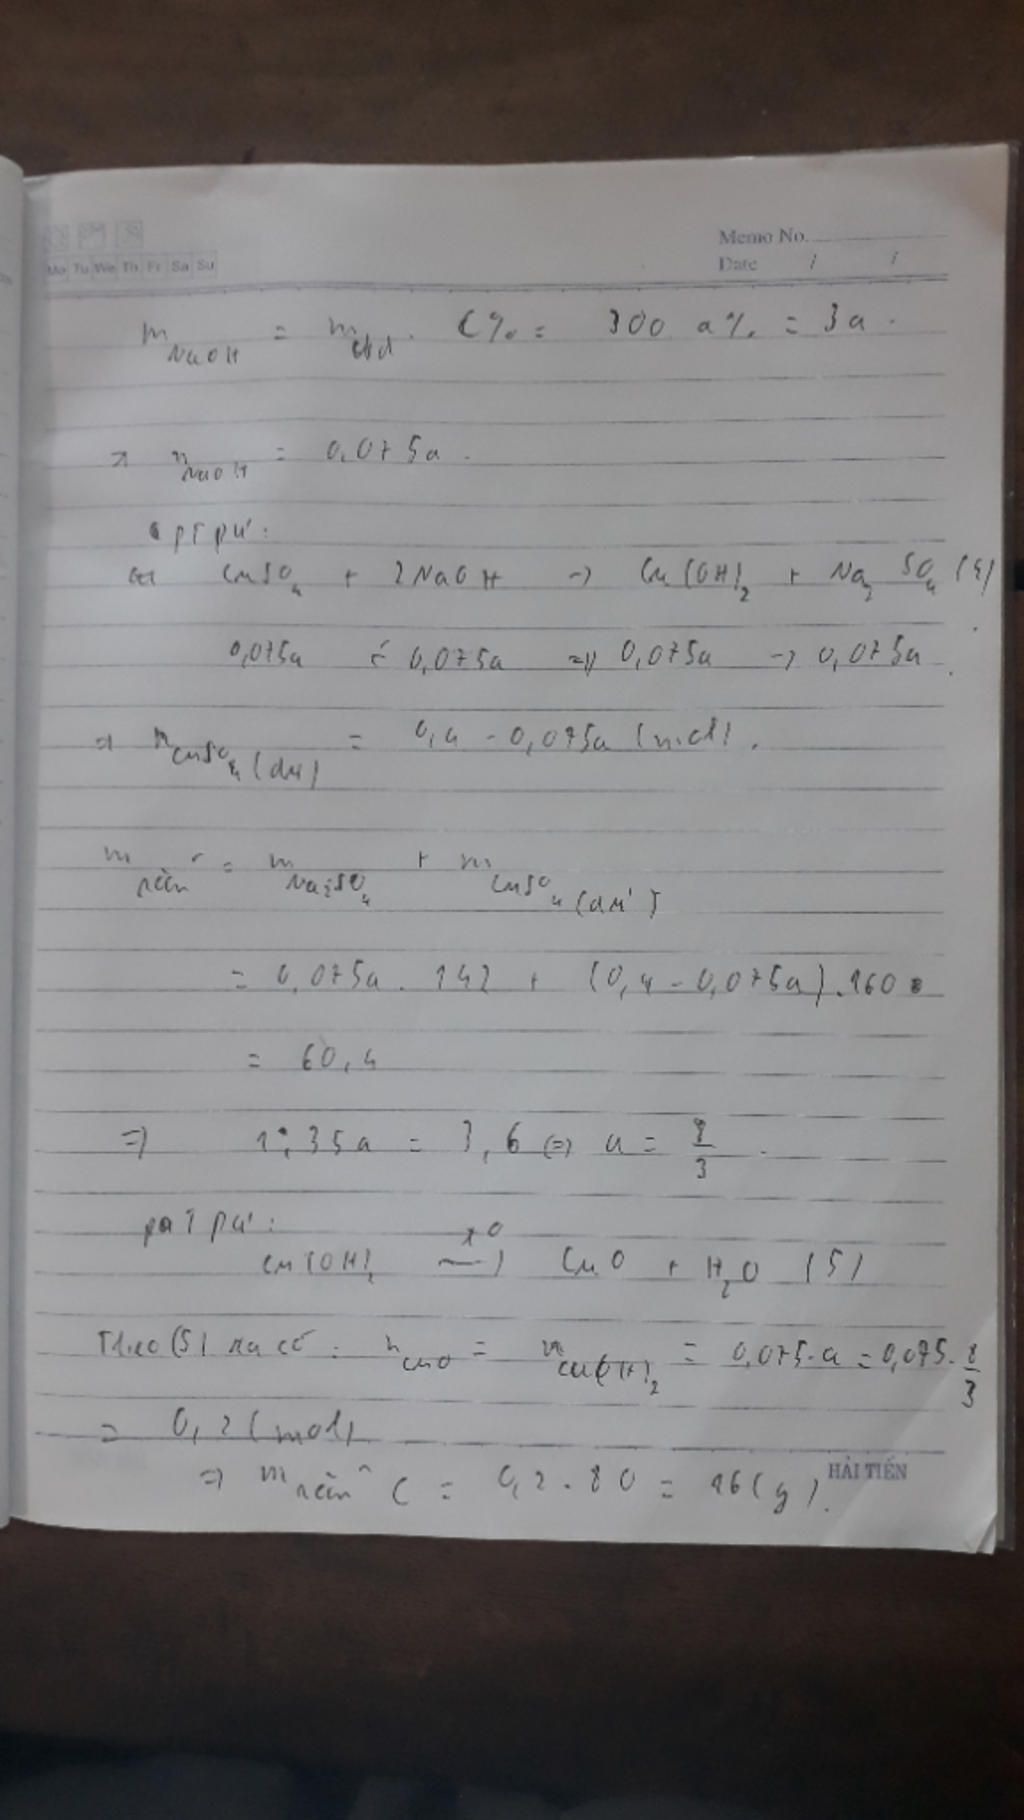 Mo Tu We Th Fr Sa Su
Memo No.
Date / /
m NaOH = m . C% = 300 a% = 3a .
n NaOH = 0,075a .
ptpư:
CuSO4 + 2NaOH → Cu(OH)2 + Na2SO4 (4)
0,075a ← 0,075a → 0,075a → 0,075a
⇒ n CuSO4 (dư) = 0,4 - 0,075a (mol).
m rắn = m Na2SO4 + m CuSO4 (dư)
= 0,075a . 142 + (0,4 - 0,075a) . 160
= 60,4
⇒ 1,35a = 3,6 ⇔ a = 8/3 .
ptpư:
Cu(OH)2 →t° CuO + H2O (5)
Theo (5) ta có : n CuO = n Cu(OH)2 = 0,075.a = 0,075.8/3
= 0,2 (mol)
⇒ m rắn C = 0,2 . 80 = 16 (g).
HẢI TIẾN